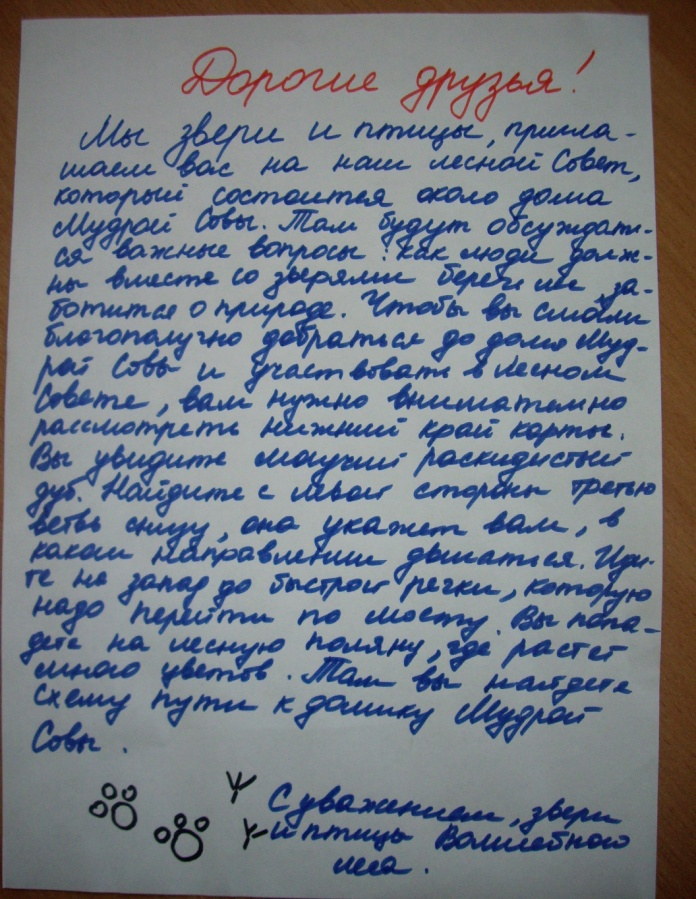 Дорогие друзья!
Мы звери и птицы, пригла-
шаем вас на наш лесной Совет,
который состоится около дома
Мудрой Совы. Там будут обсуждать-
ся важные вопросы: как люди долж-
ны вместе со зверями беречь и за-
ботится о природе. Чтобы вы смогли
благополучно добраться до дома Муд-
рой Совы и участвовать в Лесном
Совете, вам нужно внимательно
рассмотреть нижний край карты.
Вы увидите могучий раскидистый
дуб. Найдите с левой стороны третью
ветвь снизу, она укажет вам, в
каком направлении двигаться. Иди-
те на запад до быстрой речки, которую
надо перейти по мосту. Вы попа-
дете на лесную поляну, где растет
много цветов. Там вы найдете
схему пути к домику Мудрой
Совы.
С уважением, звери
и птицы Волшебного
леса.